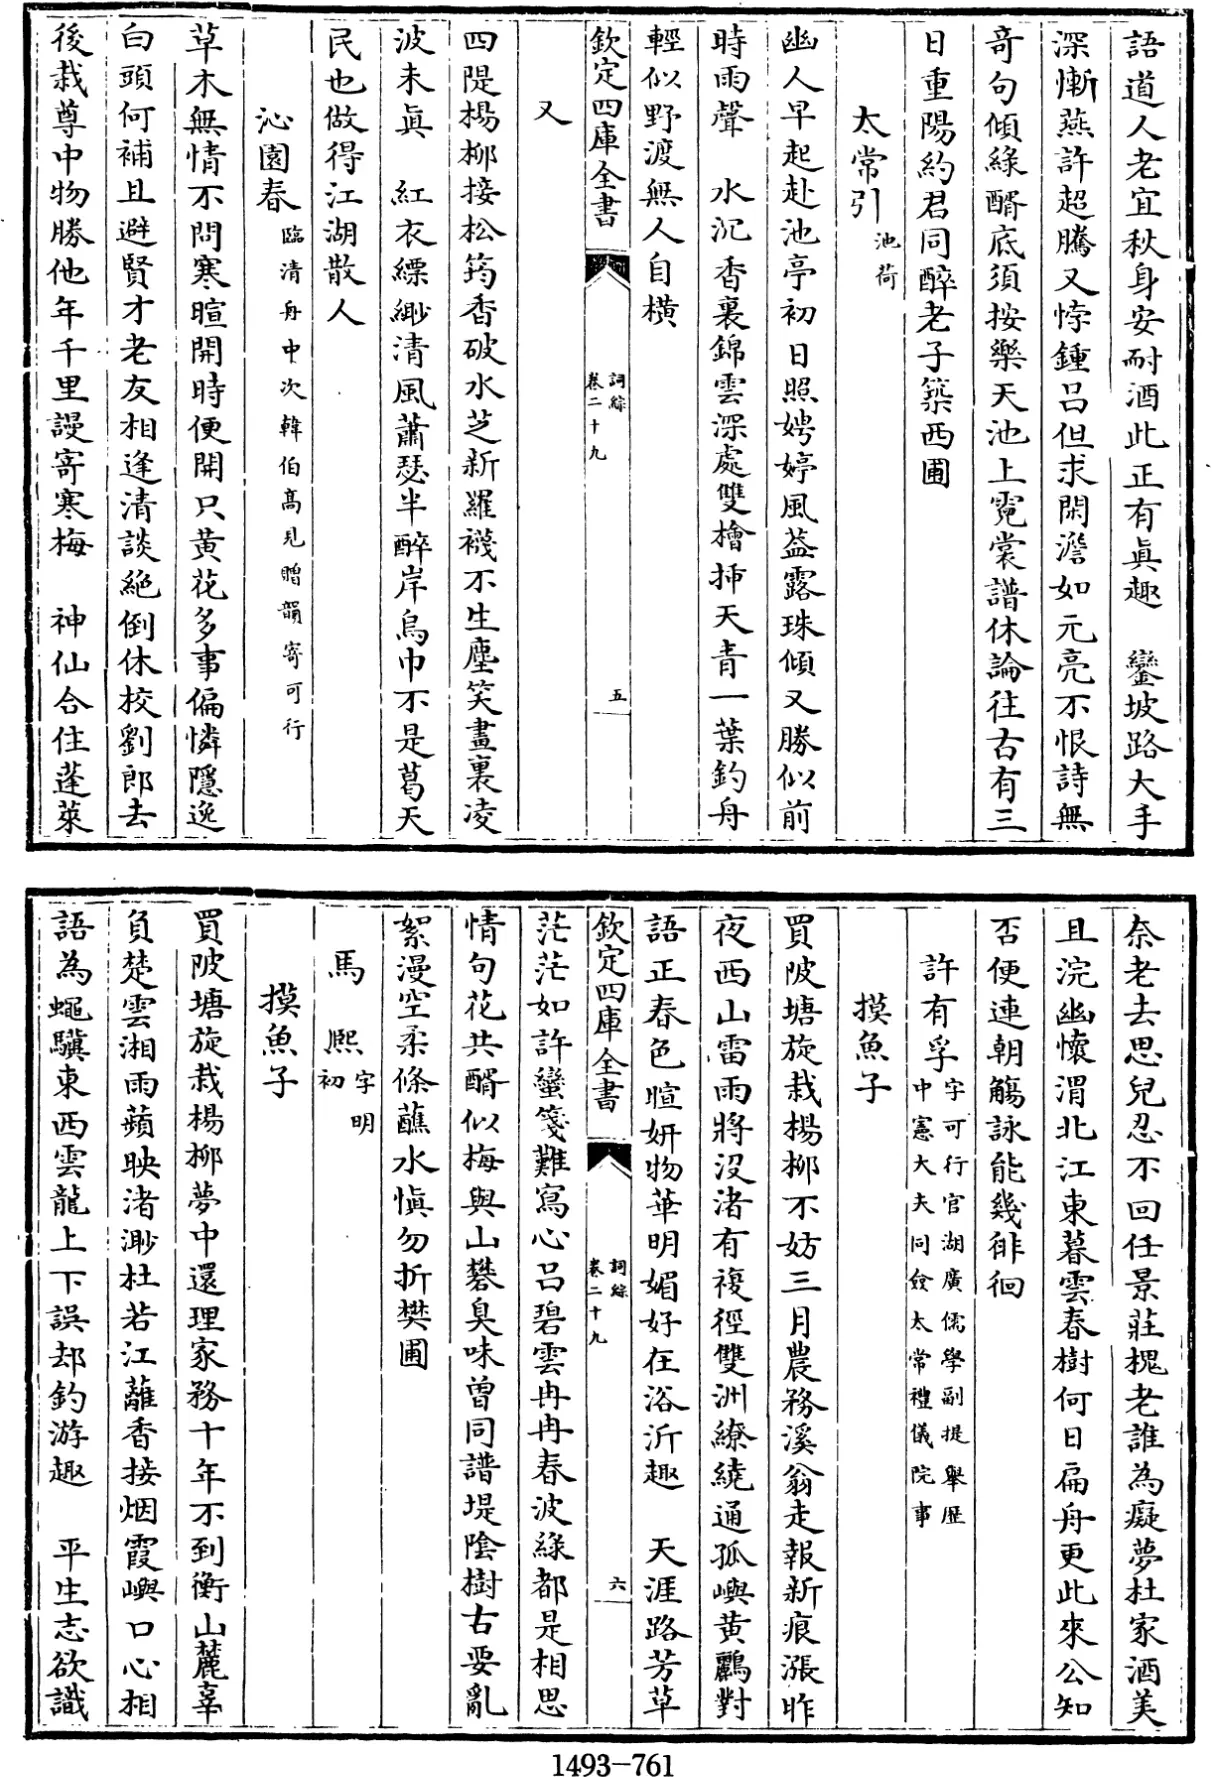 語道人老宜秋身安耐酒此正有真趣　鑾坡路大手
深慚燕許超騰又悖鍾呂但求閑澹如元亮不恨詩無
奇句傾緑醑底須按樂天池上霓裳譜休論往古有三
日重陽約君同醉老子築西圃
太常引池荷
幽人早起赴池亭初日照娉婷風葢露珠傾又勝似前
時雨聲　水沉香裏錦雲深處雙檜揷天青一葉釣舟
輕似野渡無人自橫
欽定四庫全書
詞綜
卷二十九
五
又
四隄楊柳接松筠香破水芝新羅襪不生塵笑畫裏凌
波未眞　紅衣縹緲清風蕭瑟半醉岸烏巾不是葛天
民也做得江湖散人
沁園春臨清舟中次韓伯高見贈韻寄可行
草木無情不問寒暄開時便開只黄花多事偏憐隱逸
白頭何補且避賢才老友相逢清談絶倒休校劉郎去
後栽尊中物勝他年千里謾寄寒梅　神仙合住蓬萊
奈老去思兒忍不回任景莊槐老誰為癡夢杜家酒美
且浣幽懷渭北江東暮雲春樹何日扁舟更此來公知
否便連朝觴詠能幾徘徊
許有孚字可行官湖廣儒學副提舉歴
中憲大夫同僉太常禮儀院事
摸魚子
買陂塘旋栽楊柳不妨三月農務溪翁走報新痕漲昨
夜西山雷雨將沒渚有複徑雙洲繚繞通孤嶼黄鸝對
語正春色暄妍物華明媚好在浴沂趣　天涯路芳草
欽定四庫全書
詞綜
卷二十九
六
茫茫如許蠻箋難寫心呂碧雲冉冉春波緑都是相思
情句花共醑似梅與山礬臭味曾同譜堤陰樹古要亂
絮漫空柔條蘸水愼勿折樊圃
馬熙字明
初
摸魚子
買陂塘旋栽楊柳夢中還理家務十年不到衡山麓辜
負楚雲湘雨蘋映渚渺杜若江蘺香接烟霞嶼口心相
語為蠅驥東西雲龍上下誤却釣游趣　平生志欲識
1493-761